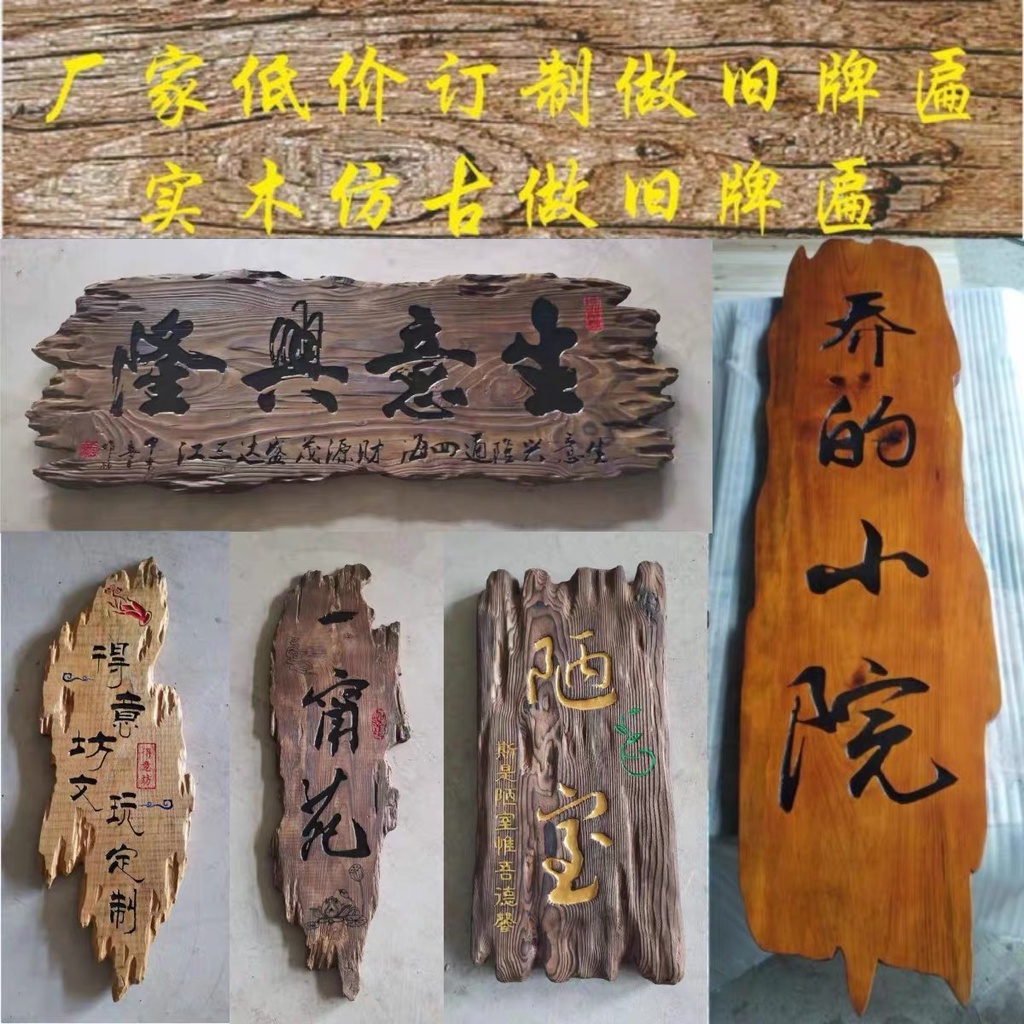 厂家低价订制做旧牌匾
实木仿古做旧牌匾
生意興隆
生意兴隆通四海 财源茂盛达三江
乔的小院
得意
坊文
玩定制
得意坊
一甯苑
陋室
斯是陋室惟吾德馨